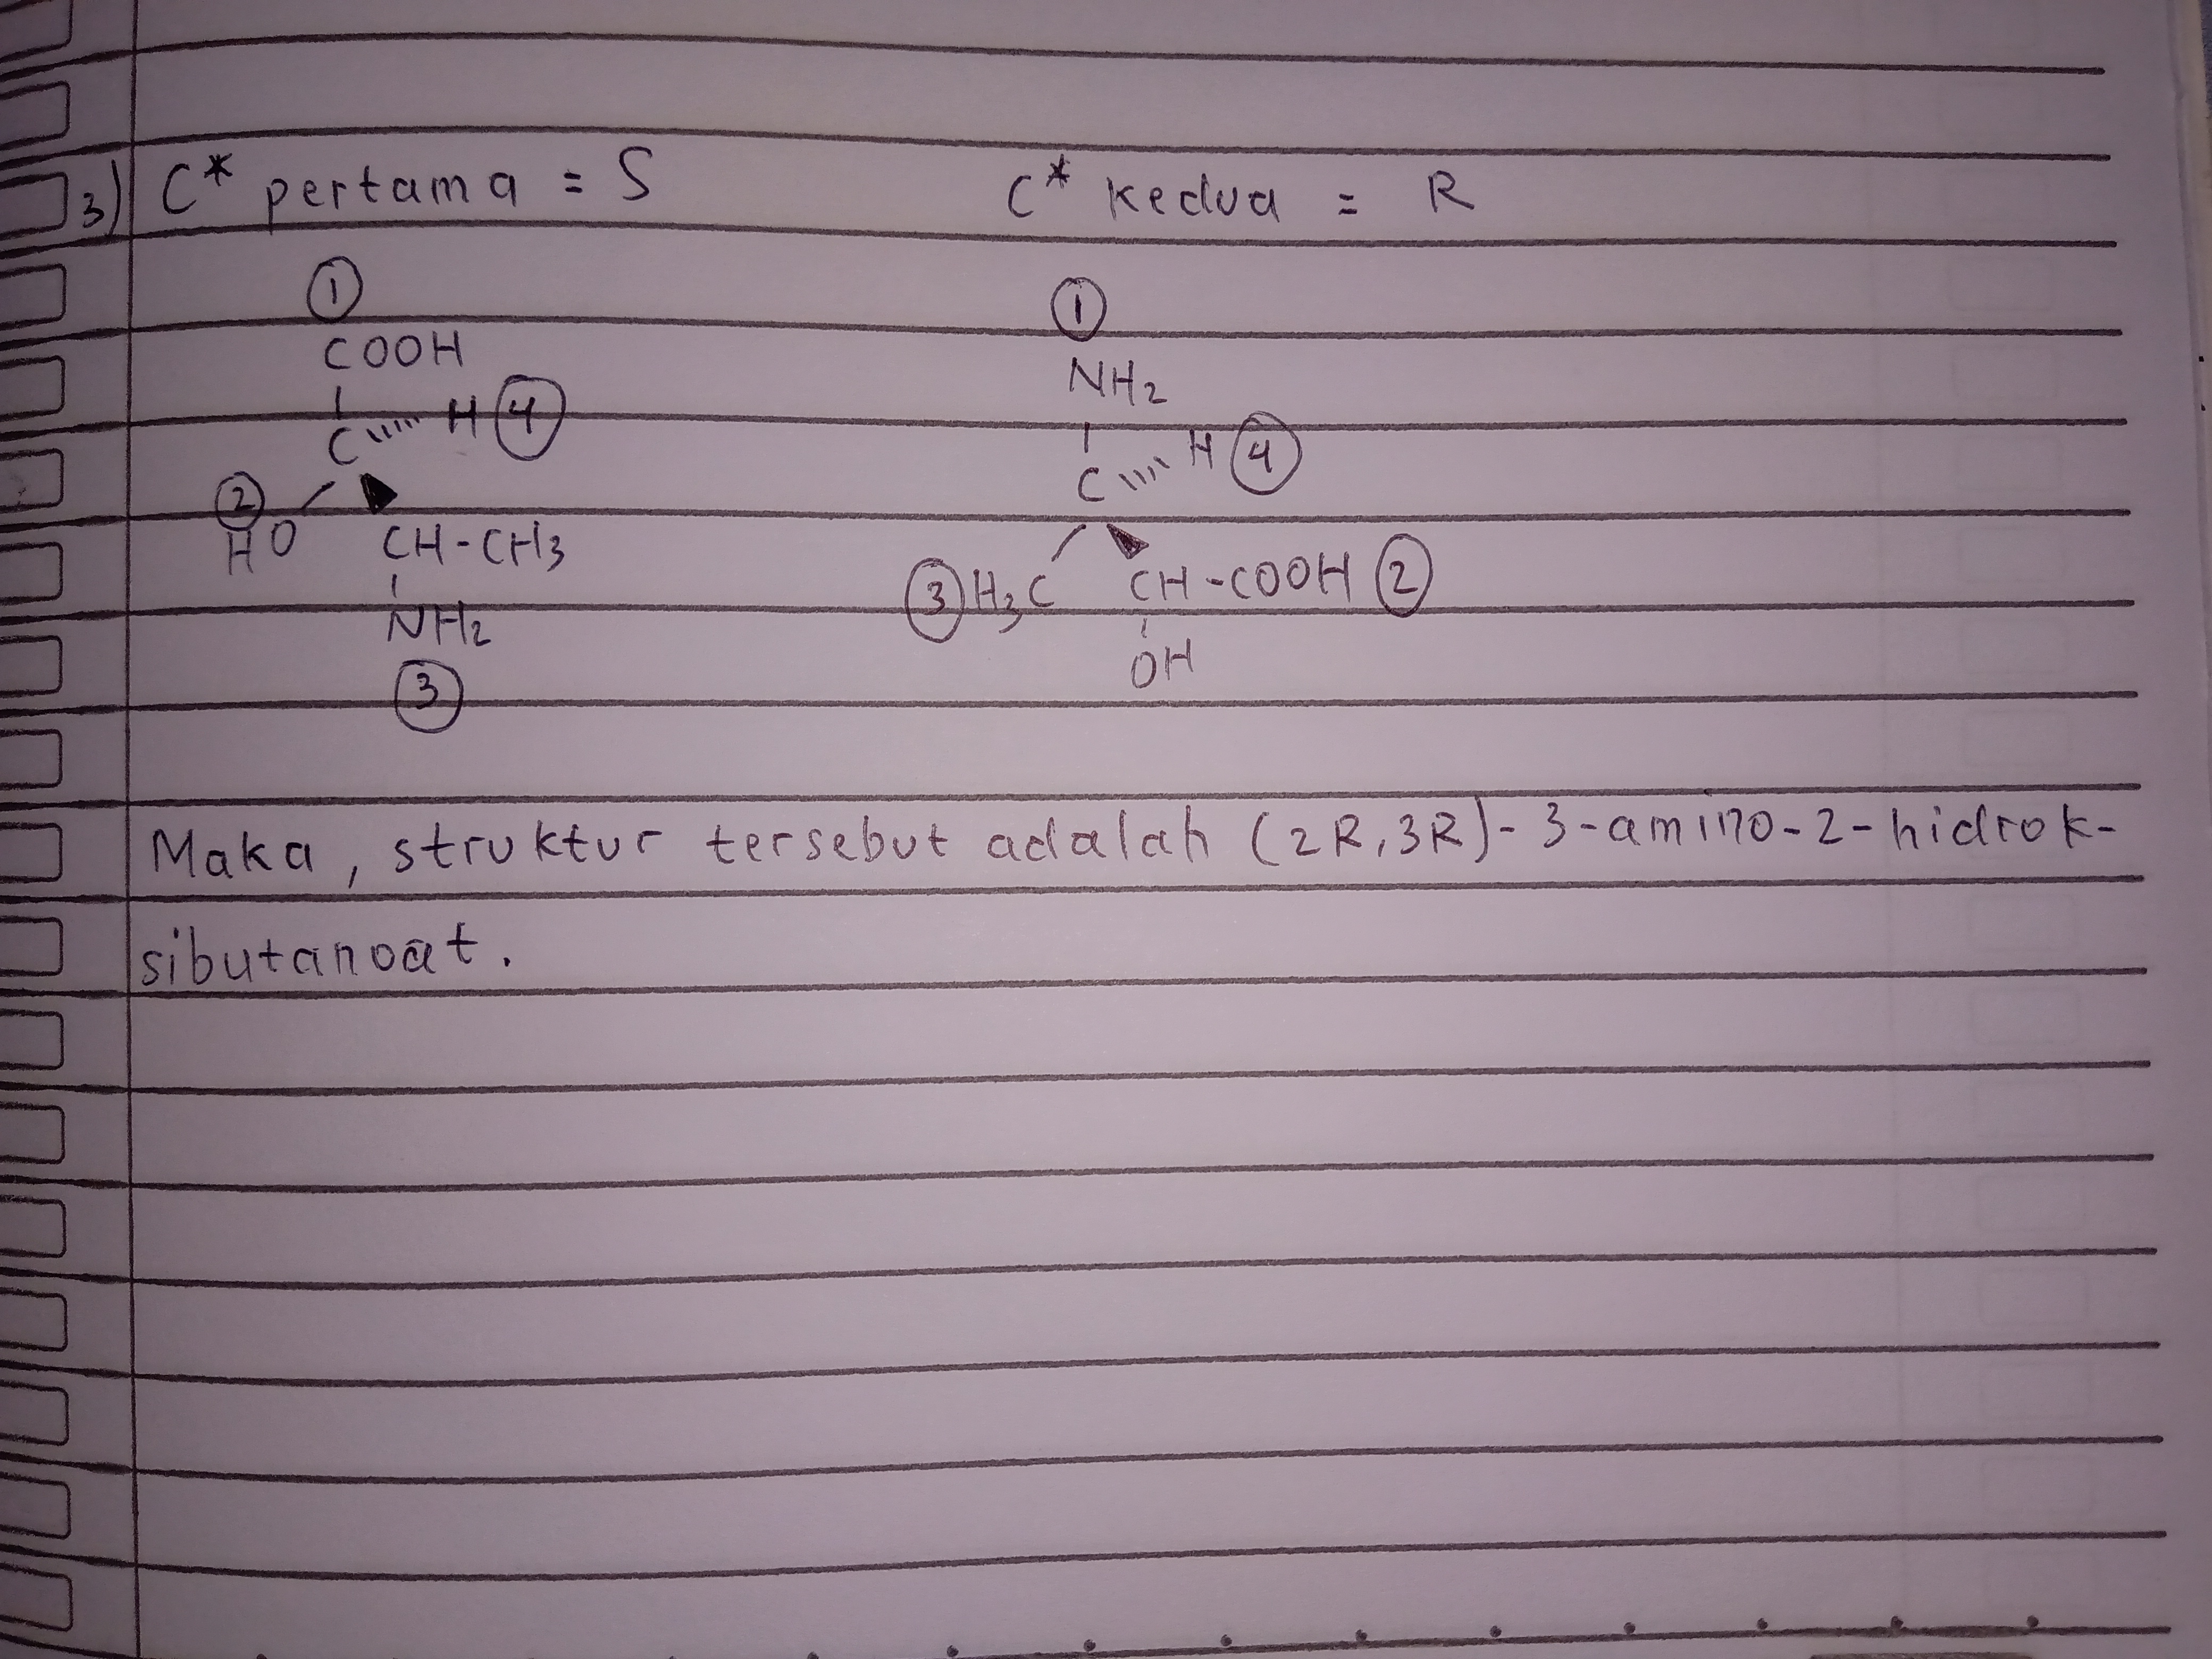 3) C* pertama = S C* kedua = R
① ①
COOH NH2
C H ④ C H ④
② HO CH-CH3 ③ H3C CH-COOH ②
NH2 OH
③
Maka, struktur tersebut adalah (2R,3R)-3-amino-2-hidrok-
sibutanoat.